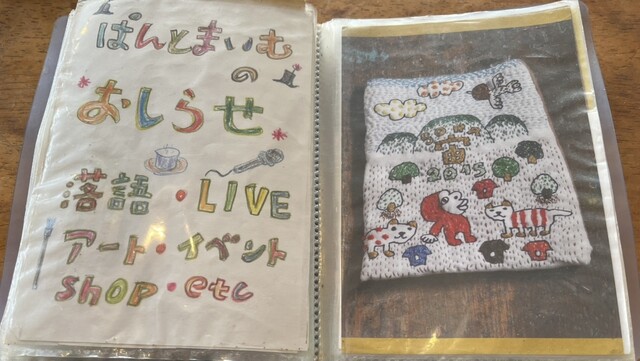 ぱんとまいむ
の
おしらせ
落語・LIVE
アート・イベント
shop・etc
2015